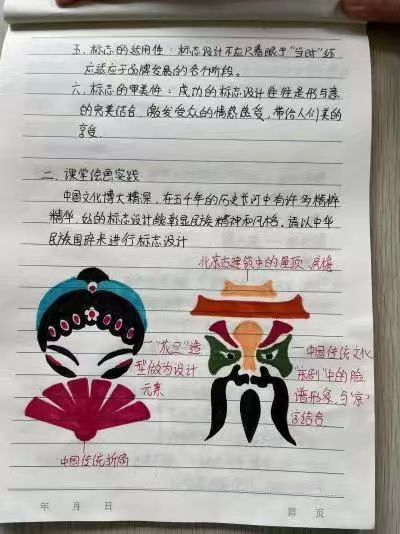 五、标志的适用性：标志设计不应只着眼于“当时”还
应适应于品牌发展的各个阶段。
六、标志的审美性：成功的标志设计往往是形与意
的完美结合，激发受众的情感感受，带给人们美的
享受.
二、课堂绘画实践
中国文化博大精深，在五千年的历史长河中有许多精粹
精华，好的标志设计能彰显民族精神和风格，请以中华
民族国粹来进行标志设计
北京古建筑中的屋顶、房檐
“花旦”造
型做为设计
元素
中国传统折扇
中国传统文化
“京剧”中的脸
谱形象，与“京”
字结合
年 月 日
第 页